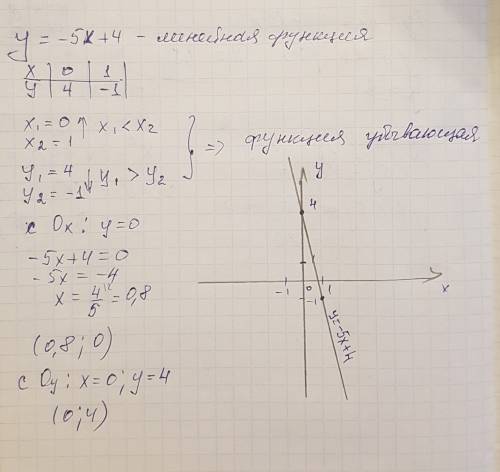 y = -5x+4 - линейная функция
x | 0 | 1 |
y | 4 | -1 |
x₁=0 ↑ x₁ < x₂
x₂=1
y₁=4 ↓ y₁ > y₂
y₂=-1
} => функция убывающая
с Ox: y=0
-5x+4=0
-5x=-4
x=4/5=0,8
(0,8; 0)
с Oy: x=0; y=4
(0; 4)
y
4
-1 0 1 x
-1
y=-5x+4